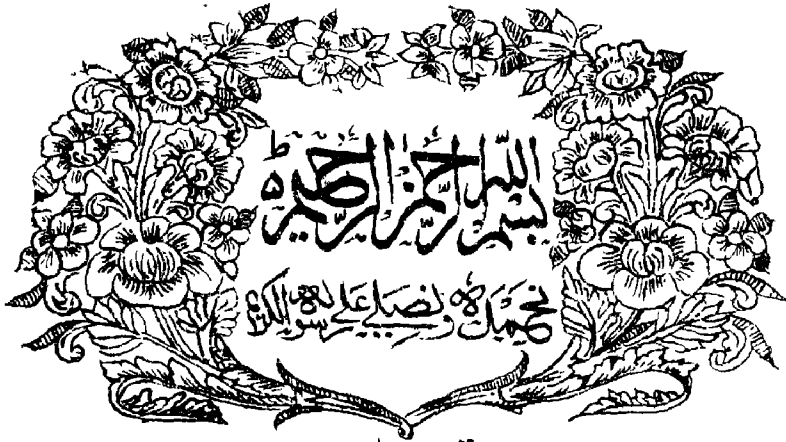 بِسْمِ اللهِ الرَّحْمٰنِ الرَّحِيْمِ
نحمدہ ونصلی علی رسولہ الکریم